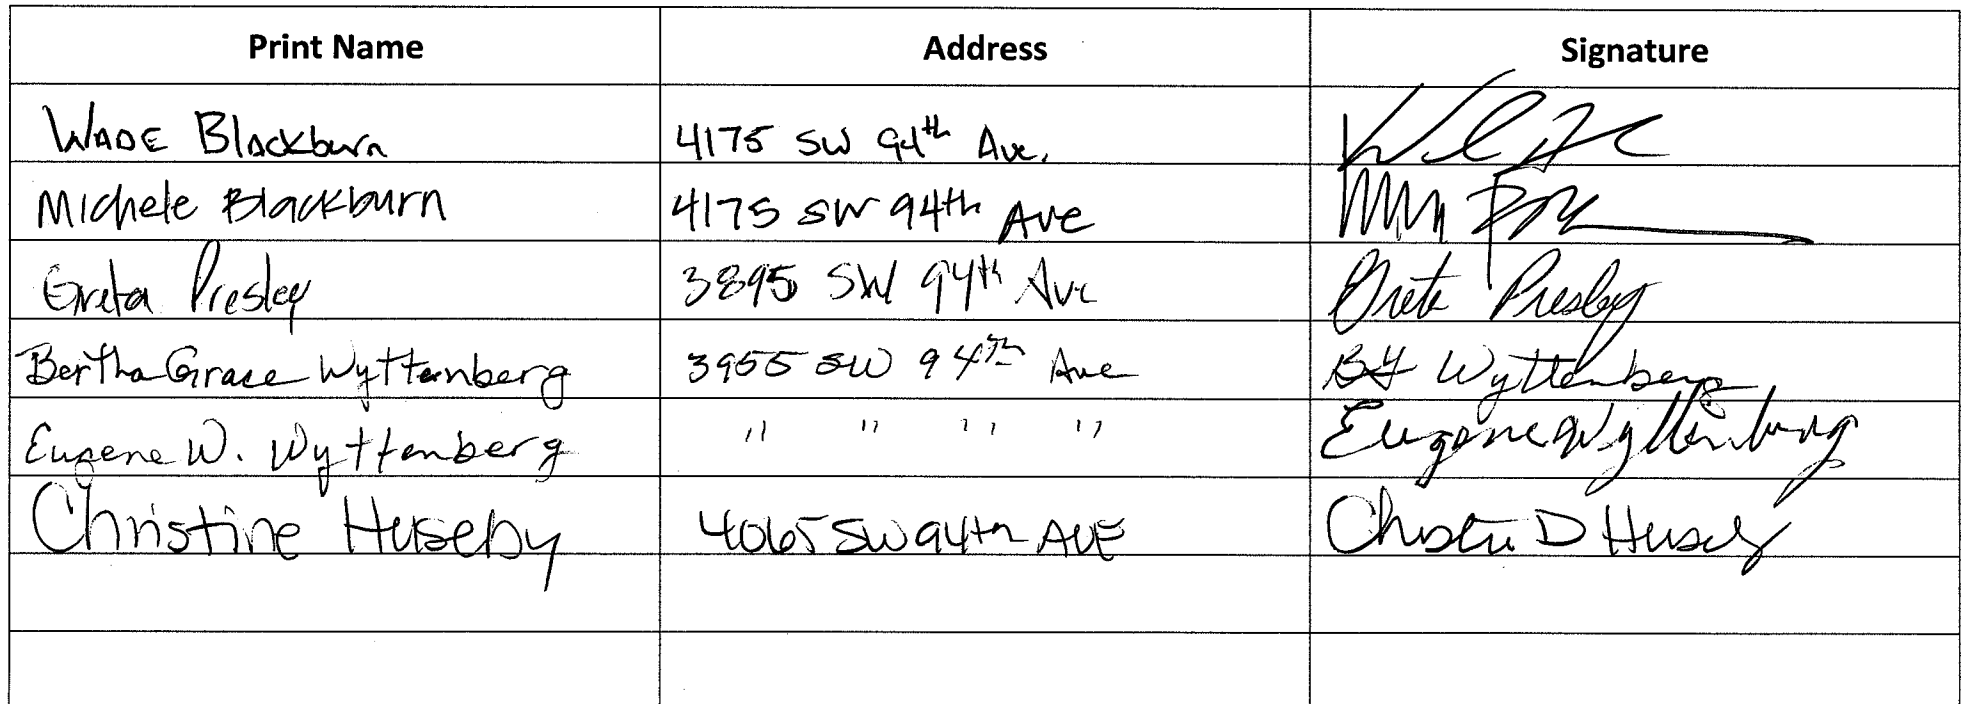 Print Name Address Signature
WADE Blackburn 4175 SW 94th Ave.
Michele Blackburn 4175 SW 94th Ave
Greta Presley 3895 SW 94th Ave Greta Presley
Bertha Grace Wyttenberg 3955 SW 94th Ave BG Wyttenberg
Eugene W. Wyttenberg " " " " Eugene W Wyttenberg
Christine Huseby 4065 SW 94th AVE Christine D Huseby